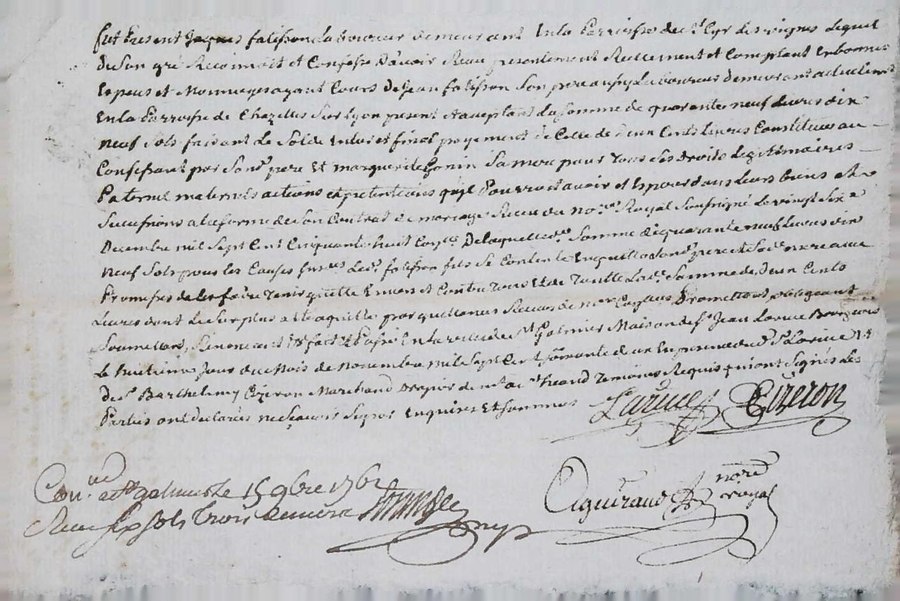 fut Present Jaques falisson Laboureur demeurant En la Parroisse de St Cyr les vignes Lequel
de son gré Reconnoit et Confesse D'avoir Reçu presentement Reellement et Comptant En bonnes
Especes et Monnoyes ayant Cours de Jean falisson Son pere aussy Laboureur demeurant
En la Parroisse de Chazelles Sur Lyon present et acceptant La Somme de quarente neuf Livres dix
neuf Sols faisant Le Solde Entier et final payement de Celle de deux Cents Livres Constituée au
Confessant par Son pere Et marguerite Sa mere pour Tous Ses droits Legitimaires
Paternels maternels actions et pretentions qu'il Pourroit avoir et Esperer dans Leurs biens et
Successions a la forme de Son Contrat de mariage Reçu du Royal Soussigné Le vingt Six
Decembre mil Sept Cent Cinquante huit De laquelle Somme de quarante neuf Livres dix
neuf Sols pour les Causes falisson fils Se Contente En quitte Son pere et Sa mere avec
Promesse de Les faire Tenir quitte Envers et Contre Tous Et de Toutte La Somme de deux Cents
Livres dont Le Surplus a Eté aquitté par quittances Promettant obligeant
Soumettant Renonçant fait Et Passé En la ville de St Galmier Maison de Jean Larue Bourgeois
Le huitieme Jour du Mois de Novembre Mil Sept Cent Soixante deux En presence Larue
de Sr Barthelemy Cizeron Marchand Temoins Requis qui ont Signés Les
Parties ont declarés ne Sçavoir Signer Enquises Et Sommées
Larue Cizeron
Con. a St galmier le 15 9bre 1762
Reçu six sols trois deniers
Aguiraud nore royal